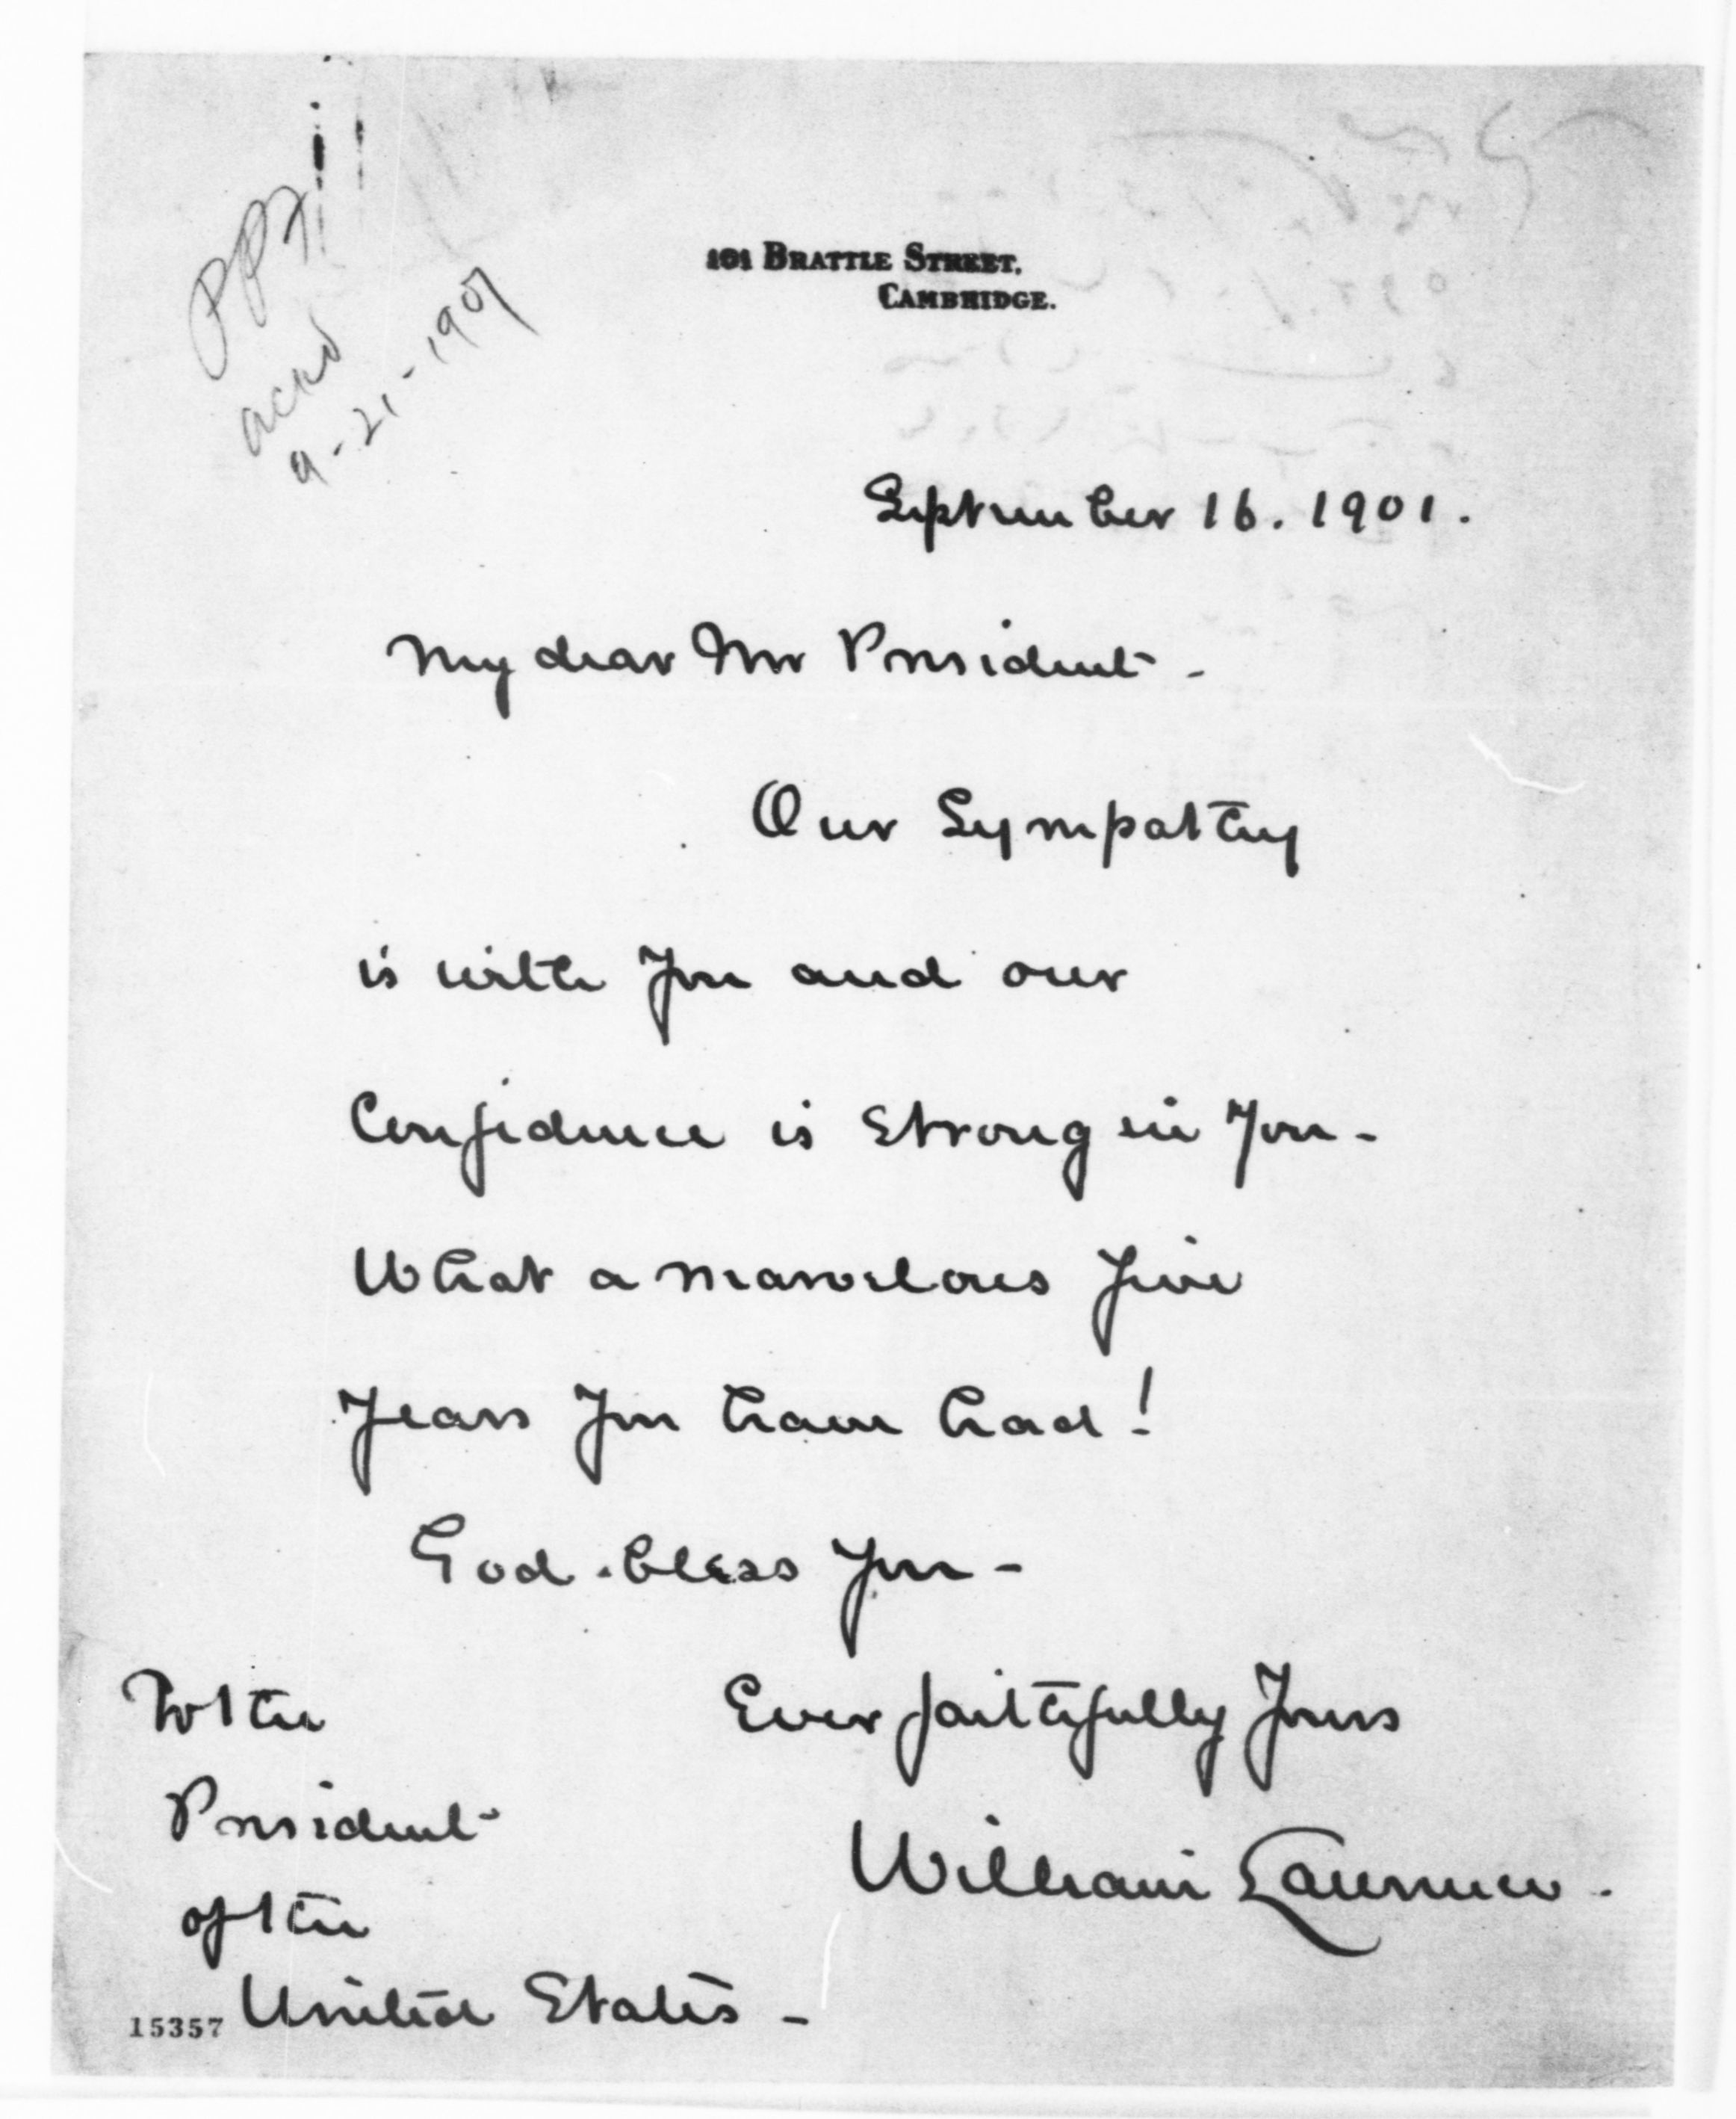 PPF
ackd
9-21-1901
101 BRATTLE STREET,
CAMBRIDGE.
September 16. 1901.
My dear Mr President -
Our Sympathy
is with you and our
Confidence is strong in you -
What a marvelous five
years you have had!
God bless you -
Ever faithfully yours
William Lawrence.
To the
President
of the
United States -
15357